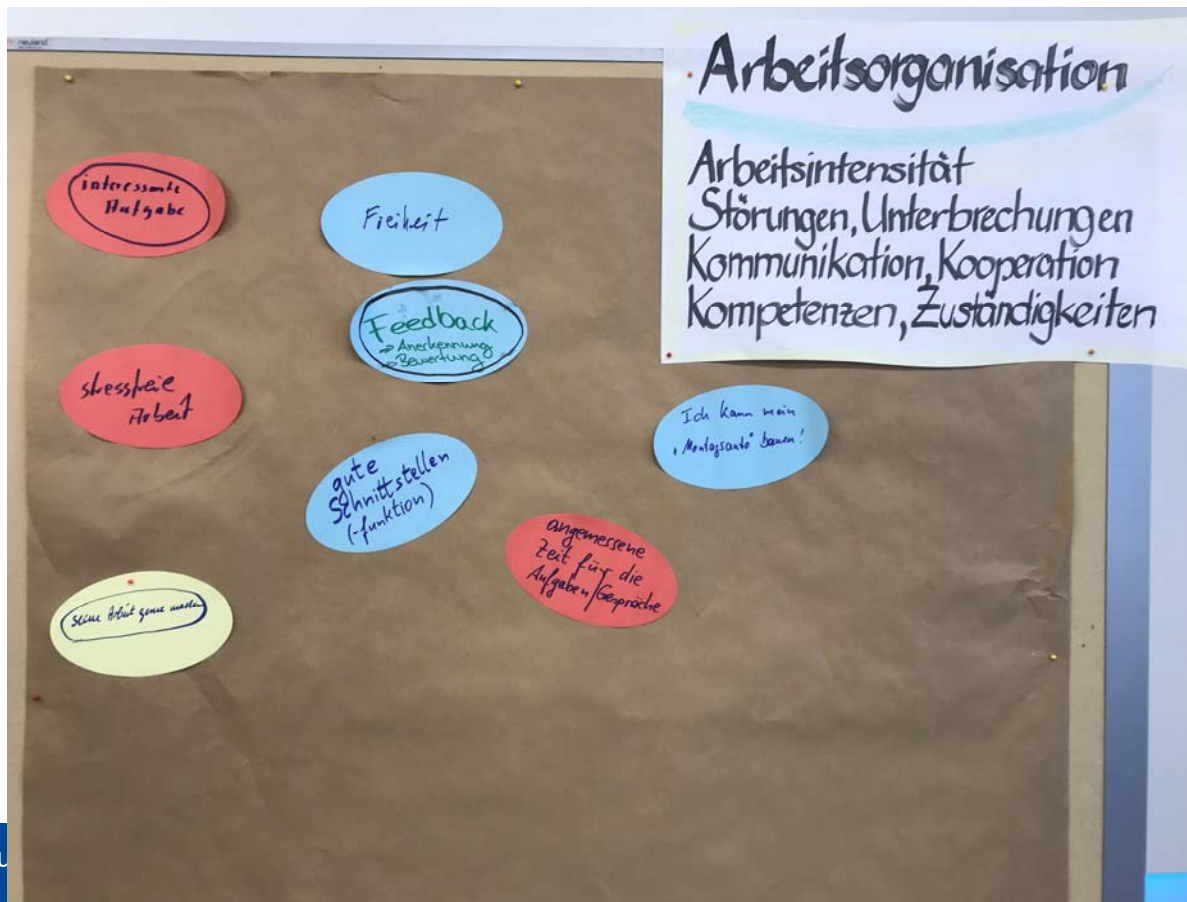 neuland
Arbeitsorganisation
Arbeitsintensität
Störungen, Unterbrechungen
Kommunikation, Kooperation
Kompetenzen, Zuständigkeiten
interessante
Aufgabe
Freiheit
Feedback
→ Anerkennung
→ Bewertung
stressfreie
Arbeit
Ich kann mein
„Montagsauto" bauen!
gute
Schnittstellen
(-funktion)
angemessene
Zeit für die
Aufgaben/Gespräche
seine Arbeit gerne machen